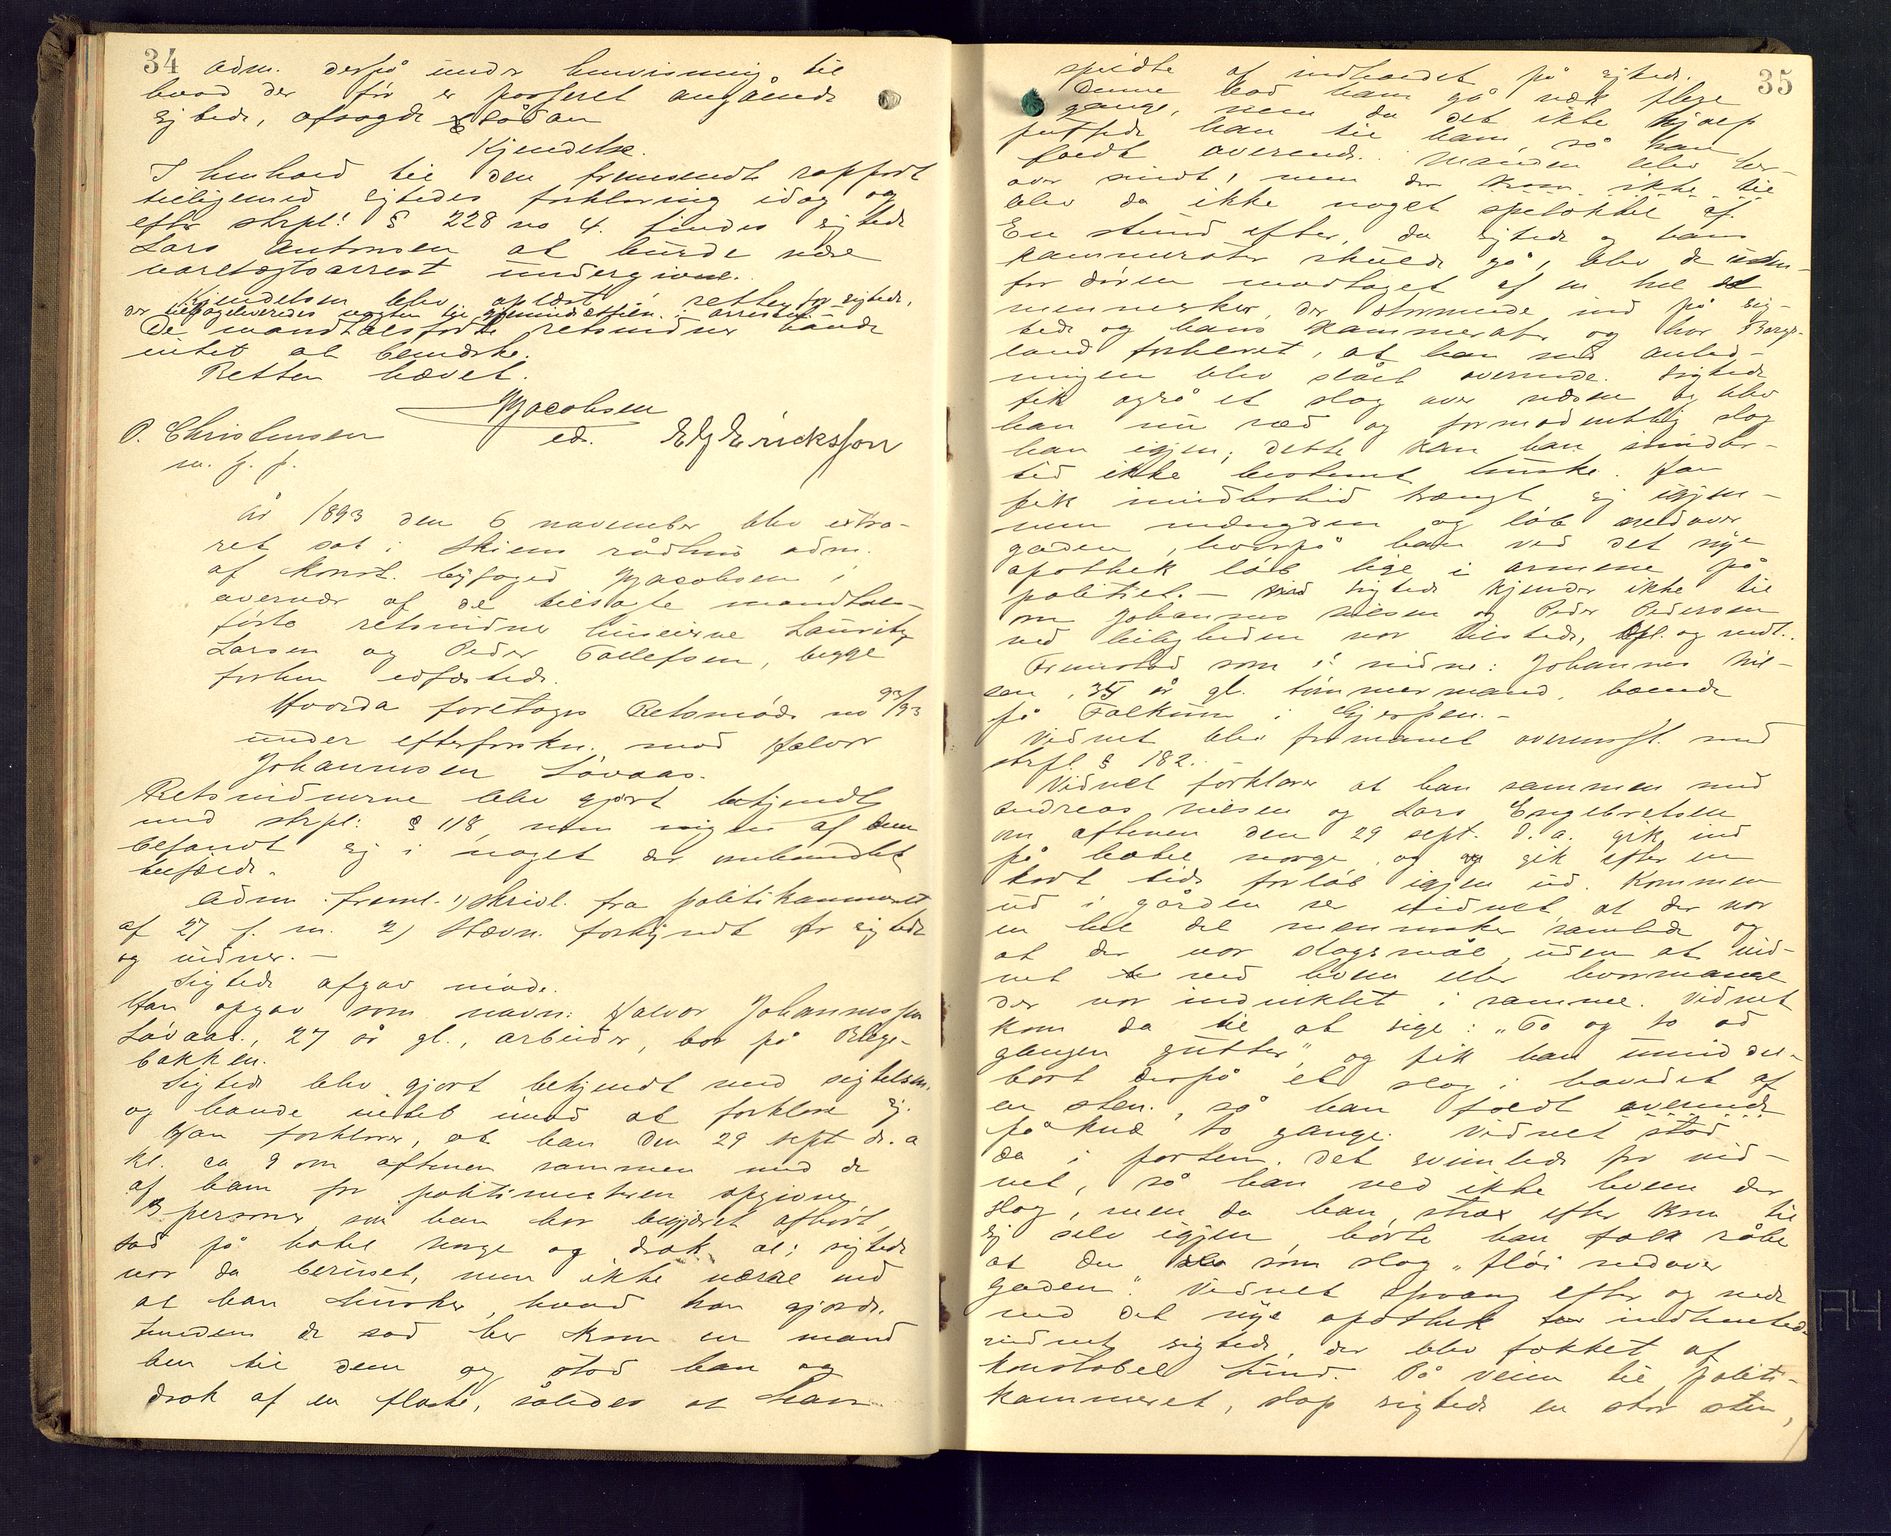 34
Adm. derpå under henvisning til
hvad der før er passeret angående
sigtede, afsagde sådan
Kjendelse.
I henhold til den fremsendte rapport
tilligemed sigtedes forklaring idag og
efter strpl. § 228 no 4. findes sigtede
Lars Antonsen at burde være
varetægtsarrest undergiven.
Kjendelsen blev oplæst i retten for sigtede,
der tilbageleveredes vagten til gjenindsættelse i arresten.
De mandtalsførte retsvidner havde
intet at bemærke.
Retten hævet.
Jacobsen
P. Christensen ed. E G Ericksson
m. f. p.
År 1893 den 6 november blev extra-
ret sat i Skiens rådhus adm.
af konst. byfoged Jacobsen i
overvær af de tilsagte mandtals-
førte retsvidner huseierne Lauritz
Larsen og Peder Tollefsen, begge
forhen edfæstede.
Hvorda foretoges Retsmøde no 93/93
under efterforskn. mod Halvor
Johannesen Løvaas.
Retsvidnerne blev gjort bekjendt
med strpl. § 118, men ingen af dem
befandt sig i noget der omhandlet
tilfælde.
Adm. freml. 1) skrivl. fra politikammeret
af 27 f. m. 2) Stævn. forkyndt for sigtede
og vidner. —
Sigtede afgav møde.
Han opgav som navn: Halvor Johannessen
Løvaas, 27 år gl., arbeider, bor på Blege-
bakken.
Sigtede blev gjort bekjendt med sigtelsen
og havde intet imod at forklare sig.
Han forklarer, at han den 29 sept d. a
kl. ca 9 om aftenen sammen med de
af ham for politimesteren opgivne
3 personer, som han har begjæret afhørt,
sad på hotel Norge og drak øl; sigtede
var da beruset, men ikke værre end
at han husker, hvad han gjorde.
Imedens de sad her kom en mand
hen til dem og stod han og
drak af en flaske, således at han
35
spildte af indholdet på sigtede.
Denne bad ham gå væk flere
gange, men da det ikke hjalp
puffede han til ham, så han
faldt overende. Manden blev her-
over sindt, men der kom ikke til
blev da ikke noget spetakkel af.
En stund efter, da sigtede og hans
kammerater skulde gå, blev de uden-
for døren modtaget af en hel del
mennesker, der stormede ind på sig-
tede og hans kammerater og har Berge-
land forklaret, at han ved anled-
ningen blev slået overende. Sigtede
fik også et slag over næsen og blev
han nu ræd og formodentlig slog
han igjen; dette kan han imidler-
tid ikke bestemt huske. Han
fik imidlertid trængt sig igjen-
nem mængden og løb nedover
gaden, hvorpå han ved det nye
apothek løb lige i armene på
politiet. — Sigtede kjender ikke til
om Johannes Nilsen og Peder Pedersen
ved leiligheden var tilstede, opl. og vedt.
Fremstod som 1. vidne: Johannes Nil-
sen, 35 år gl. tømmermand, boende
på Falkum i Gjerpen. —
Vidnet blev formanet overensst. med
strpl. § 182. —
Vidnet forklarer at han sammen med
Andreas Nilsen og Lars Engebretsen
om aftenen den 29 sept. d. a. gik ind
på hotel Norge, og gik efter en
kort tids forløb igjen ud. Kommen
ud i gården ser vidnet, at der var
en hel del mennesker samlede og
at der var slagsmål, uden at vid-
net ved hvem eller hvormange
der var indviklet i samme. Vidnet
kom da til at sige: „To og to ad
gangen gutter", og fik han umiddel-
bart derpå et slag i hovedet af
en sten, så han faldt overende
på knæ to gange. Vidnet stod
da i porten. Det svimlede for vid-
net, så han ved ikke hvem der
slog, men da han strax efter kom til
sig selv igjen, hørte han folk råbe
at den som slog „fløi nedover
gaden". Vidnet sprang efter og nede
ved det nye apothek indhentede
vidnet sigtede, der blev tokket af
konstabel Lund. På veien til politi-
kammeret, slap sigtede en stor sten,